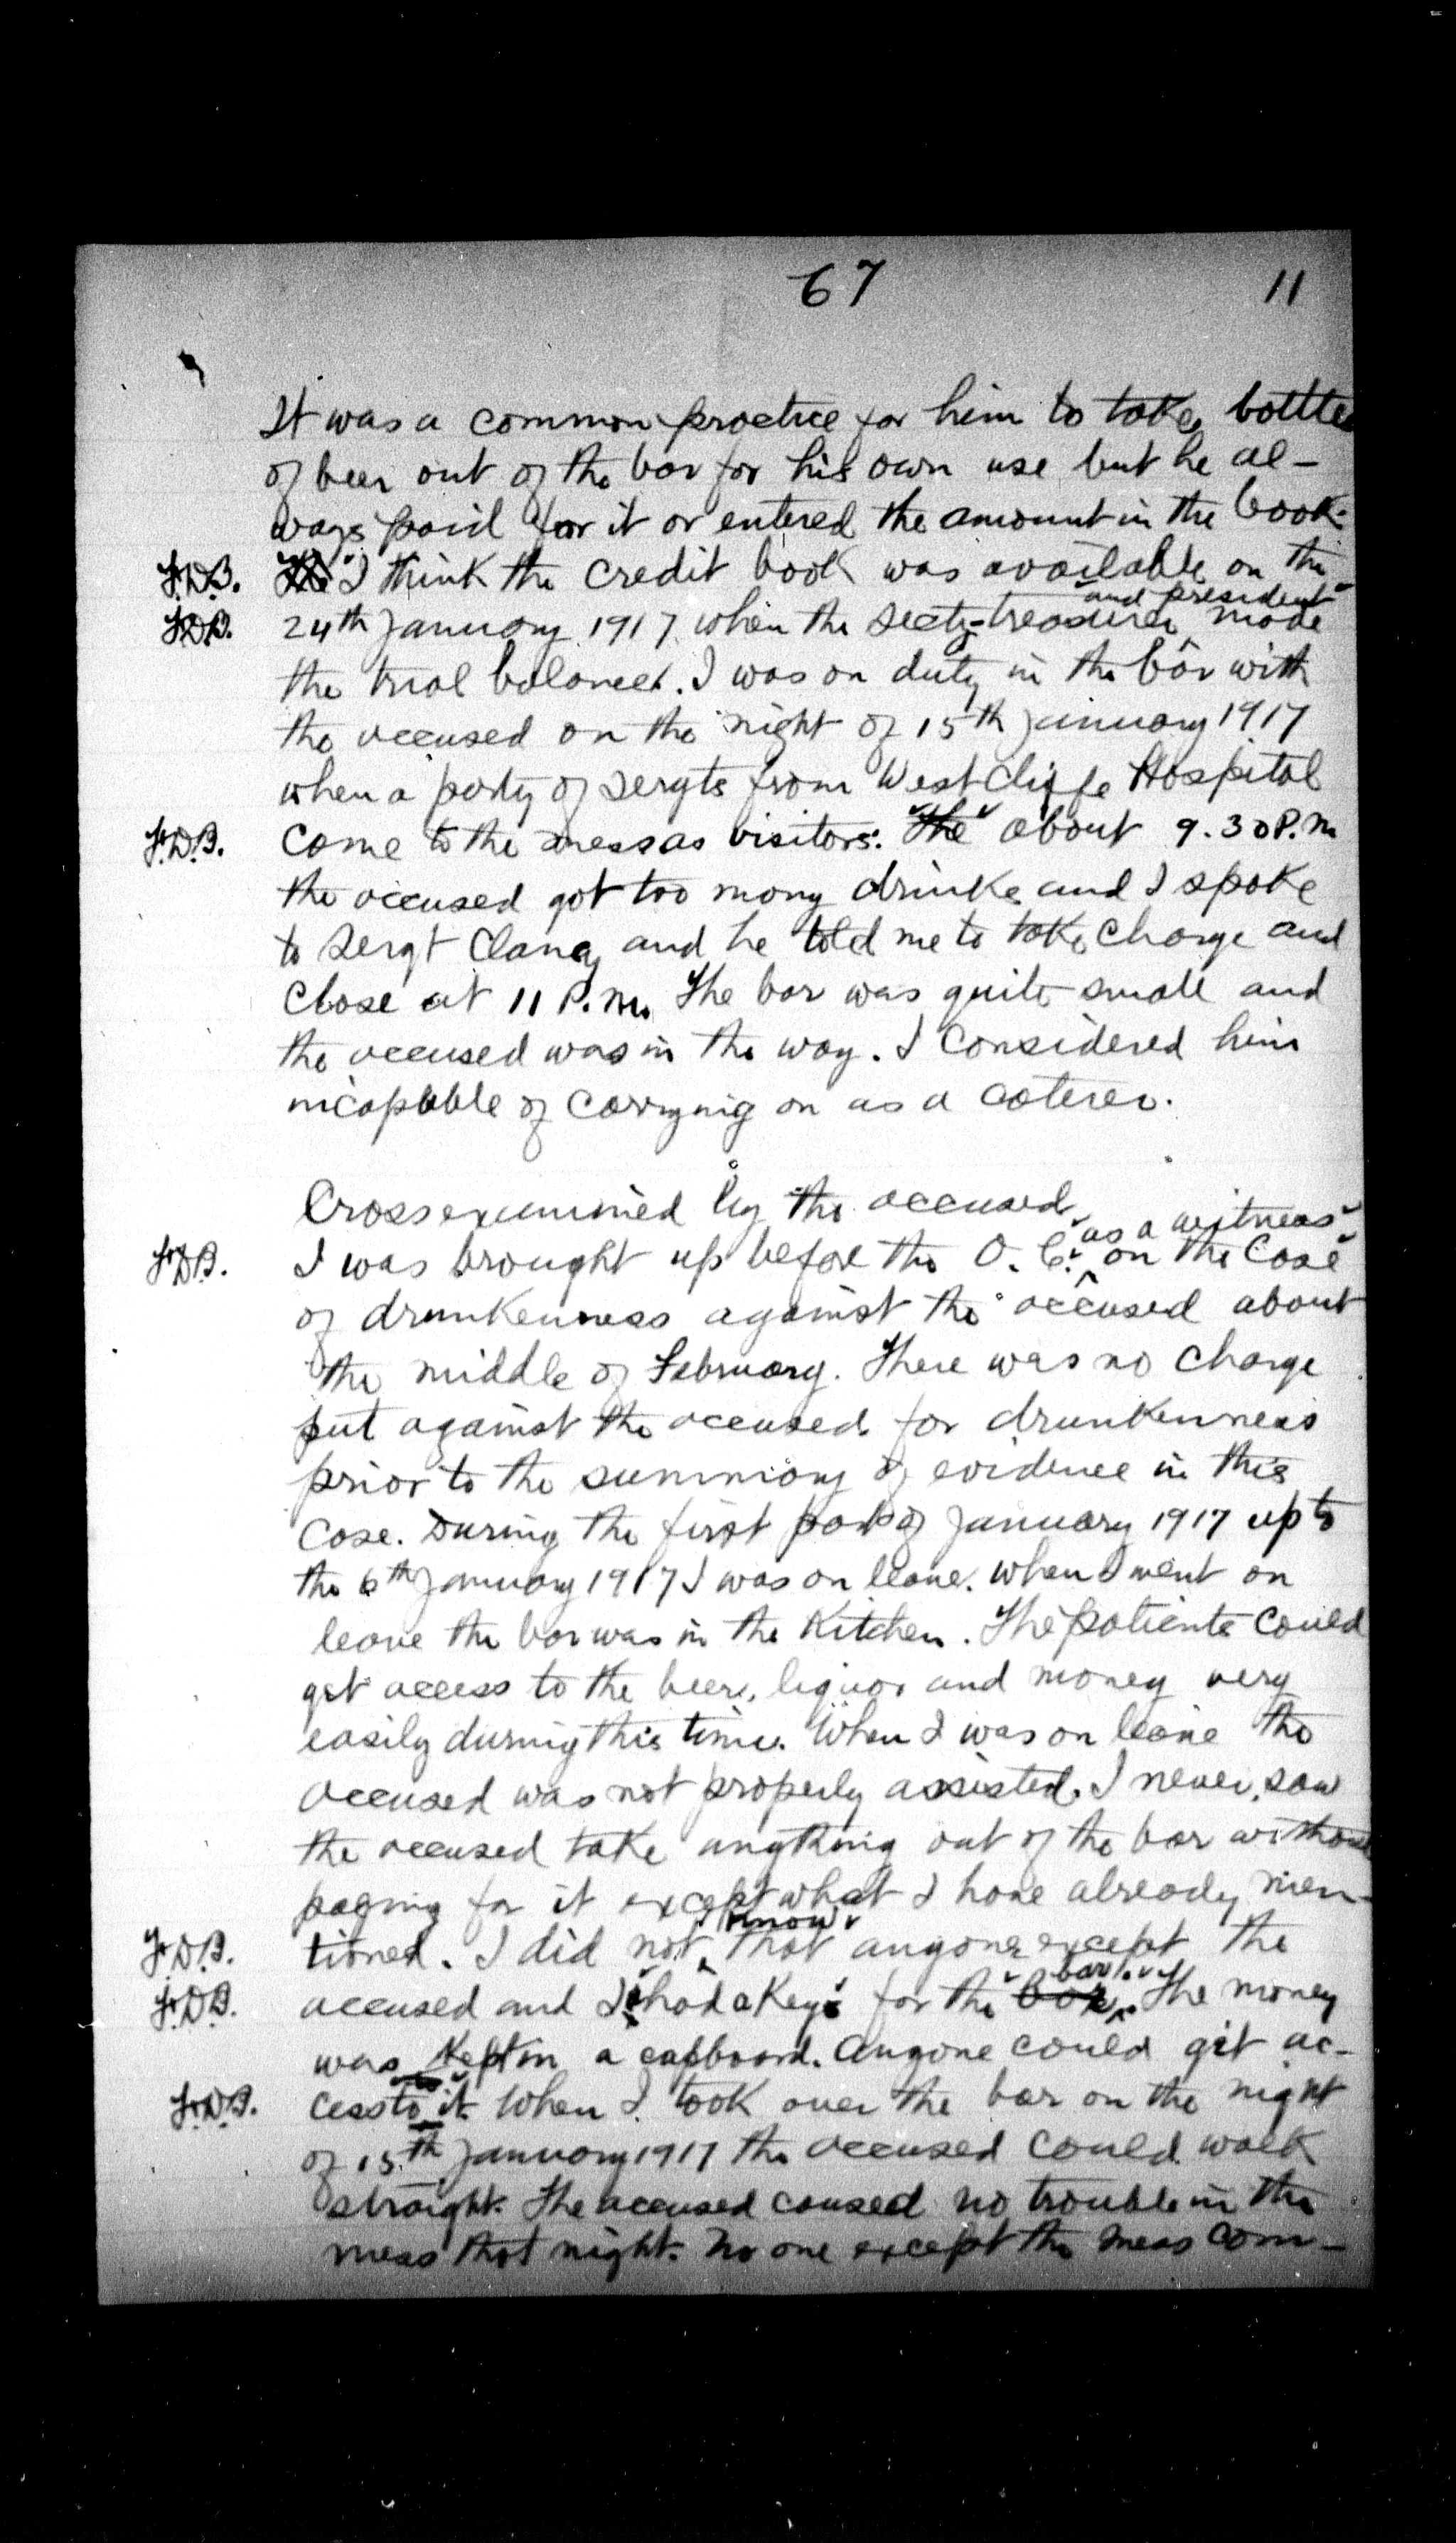 67 11
It was a common practice for him to take bottles
of beer out of the bar for his own use but he al-
ways paid for it or entered the amount in the book.
F.D.B. I think the credit book was available on the
and president
F.D.B. 24th January 1917 when the secty-treasurer made
the trial balance. I was on duty in the bar with
the accused on the night of 15th January 1917
when a party of sergts from West Cliffe Hospital
F.D.B. came to the mess as visitors. The about 9.30 P.m
the accused got too many drinks and I spoke
to Sergt Clancy and he told me to take charge and
close at 11 P.m. The bar was quite small and
the accused was in the way. I considered him
incapable of carrying on as a caterer.
Cross examined by the accused
as a witness
F.D.B. I was brought up before the O.C. on the case
of drunkenness against the accused about
the middle of February. There was no charge
put against the accused for drunkenness
prior to the summary of evidence in this
case. During the first part of January 1917 up to
the 6th January 1917 I was on leave. When I went on
leave the bar was in the kitchen. The patients could
get access to the beer, liquor and money very
easily during this time. When I was on leave the
accused was not properly assisted. I never saw
the accused take anything out of the bar without
paying for it except what I have already men-
know
F.D.B. tioned. I did not that anyone except the
bar.
F.D.B. accused and I had a key for the box. The money
was kept in a cupboard. Anyone could get ac-
F.D.B. cess to it. When I took over the bar on the night
of 15th January 1917 the accused could walk
straight. The accused caused no trouble in the
mess that night. No one except the mess com-